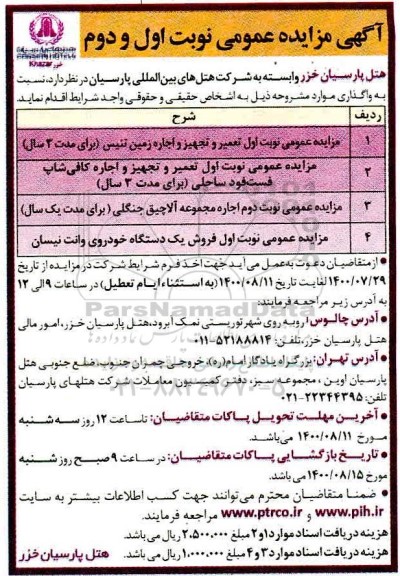 آگهی مزایده عمومی نوبت اول و دوم
خزر Khazar
هتل پارسیان خزر وابسته به شرکت هتل‌های بین‌المللی پارسیان در نظر دارد، نسبت
به واگذاری موارد مشروحه ذیل به اشخاص حقیقی و حقوقی واجد شرایط اقدام نماید.
ردیف شرح
۱ مزایده عمومی نوبت اول تعمیر و تجهیز و اجاره زمین تنیس (برای مدت ۳ سال)
۲ مزایده عمومی نوبت اول تعمیر و تجهیز و اجاره کافی‌شاپ
فست‌فود ساحلی (برای مدت ۳ سال)
۳ مزایده عمومی نوبت دوم اجاره مجموعه آلاچیق جنگلی (برای مدت یک سال)
۴ مزایده عمومی نوبت اول فروش یک دستگاه خودروی وانت نیسان
• از متقاضیان دعوت به عمل می آید جهت اخذ فرم شرایط شرکت در مزایده از تاریخ
۱۴۰۰/۰۷/۲۹ لغایت تاریخ ۱۴۰۰/۰۸/۱۱ (به استثناء ایام تعطیل) در ساعات ۹ الی ۱۲
به آدرس زیر مراجعه فرمایند:
• آدرس چالوس: روبه روی شهر توریستی نمک آبرود، هتل پارسیان خزر، امور مالی
هتل پارسیان خزر، تلفن: ۵۲۱۸۸۸۱۴-۰۱۱
• آدرس تهران: بزرگراه یادگار امام(ره)، خروجی چمران جنوب، ضلع جنوبی هتل
پارسیان اوین، مجموعه سبز، دفتر کمیسیون معاملات شرکت هتلهای پارسیان
تلفن: ۲۲۳۴۴۳۹۵-۰۲۱
• آخرین مهلت تحویل پاکات متقاضیان: تا ساعت ۱۲ روز سه شنبه
مورخ ۱۴۰۰/۰۸/۱۱ می‌باشد.
• تاریخ بازگشایی پاکات متقاضیان: در ساعت ۹ صبح روز شنبه
مورخ ۱۴۰۰/۰۸/۱۵ می باشد.
• ضمنا متقاضیان محترم می‌توانند جهت کسب اطلاعات بیشتر به سایت
www.pih.ir و www.ptrco.ir مراجعه فرمایند.
هزینه دریافت اسناد موارد ۱ و ۲ مبلغ ۲.۵۰۰.۰۰۰ ریال می باشد.
هزینه دریافت اسناد موارد ۳ و ۴ مبلغ ۱.۰۰۰.۰۰۰ ریال می باشد. هتل پارسیان خزر
ParsNamadData